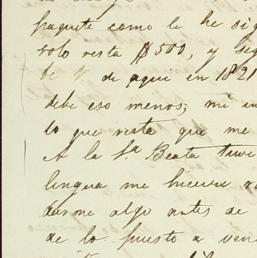 paquete como le he sig
solo resta $500, y seg
de aqui en 1821
debe eso menos; mi in
lo que resta que me
A la Sª Beata tuve
lengua me hicieron
darme algo antes de
de lo puesto a ven